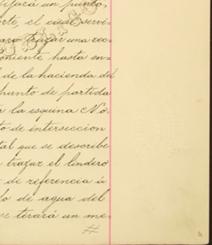 tificará un punto,
rte, el cual servi-
para trazar una rec-
poniente hasta en-
de la hacienda del
punto de partida
a la esquina No.
to de interseccion
tal que se describe
trazar el lindero
de referencia á
lo de agua del
se tirará un me-